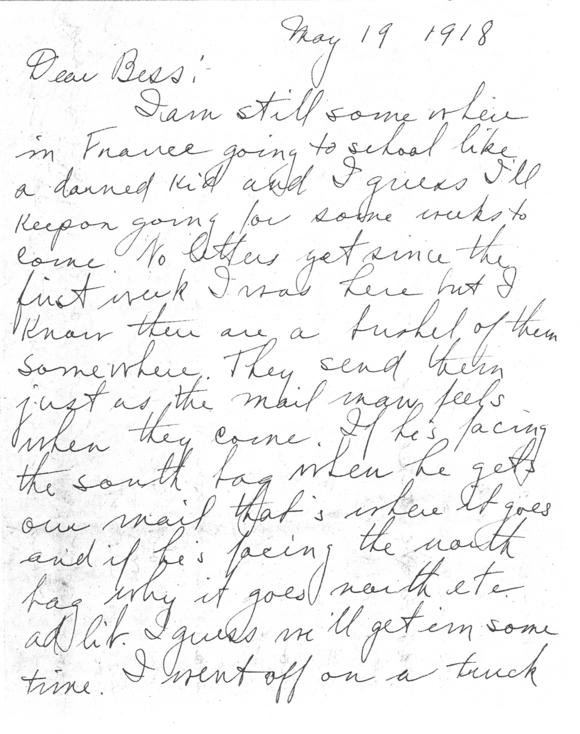 May 19 1918
Dear Bess:
I am still some where
in France going to school like
a darned kid and I guess I'll
keep on going for some weeks to
come No letters yet since the
first week I was here but I
know there are a bushel of them
somewhere. They send them
just as the mail man feels
when they come. If he's facing
the south bag when he gets
our mail that's where it goes
and if he's facing the north
bag why it goes north etc.
ad lib. I guess we'll get em some
time. I went off on a truck